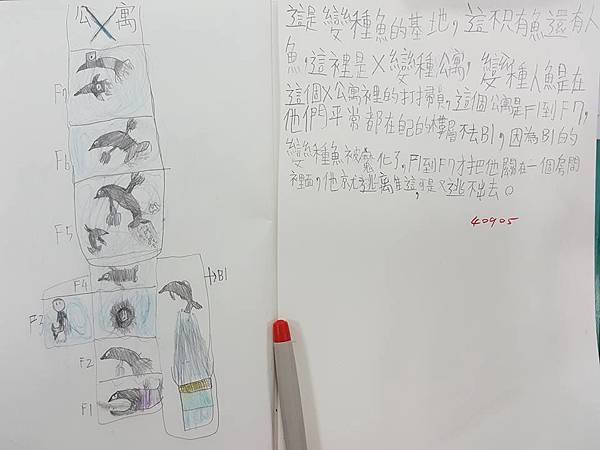 公X寓
F7
F6
F5
F4
→B1
F3
F2
F1
這是變種魚的基地,這不只有魚還有人
魚,這裡是X變種公寓,變種人魚是在
這個X公寓裡的打掃員,這個公寓是F1到F7,
他們平常都在自己的樓層不去B1,因為B1的
變種魚被魔化了,F1到F7才把他關在一個房間
裡面,他就逃離這,可是又逃不出去。
40905